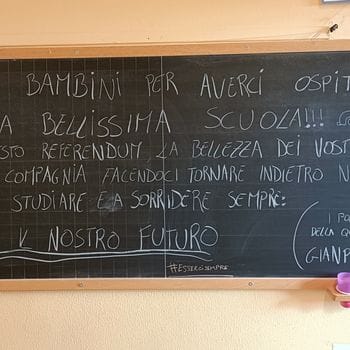 BAMBINI PER AVERCI OSPIT
A BELLISSIMA SCUOLA!!!
STO REFERENDUM LA BELLEZZA DEI VOST
COMPAGNIA FACENDOCI TORNARE INDIETRO N
STUDIARE E A SORRIDERE SEMPRE:
IL NOSTRO FUTURO
#ESSERCISEMPRE
I PO
DELLA Q
GIANP